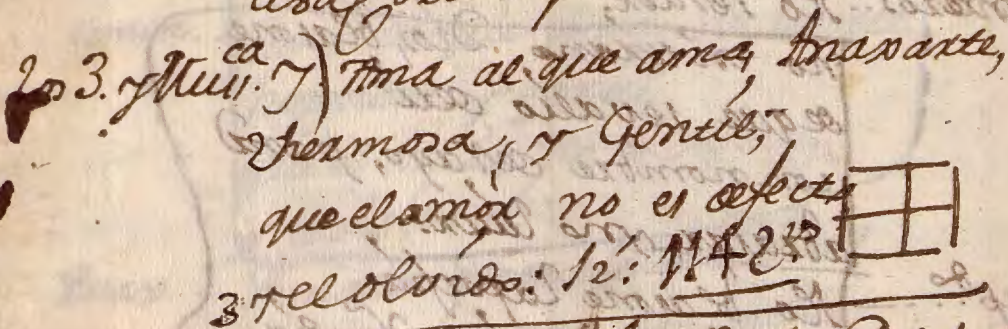 Los 3. y Mus.ca y) Ama al que ama, Anaxarte,
hermosa, y Gentil,
que el amor no es defecto
y el olvido: 12: